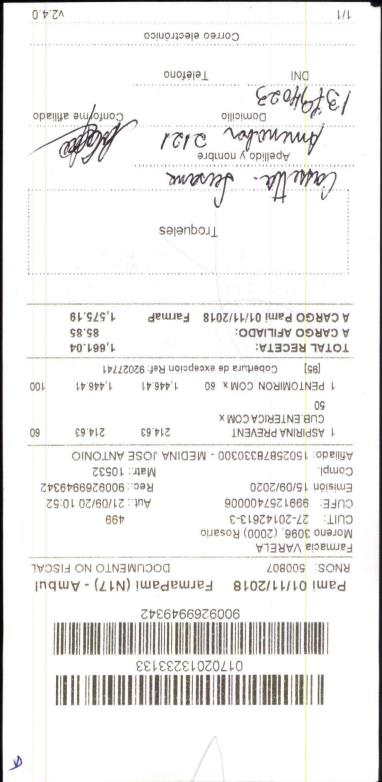 0170201323313​3
9009269949342
Pami 01/11/2018 FarmaPami (N17) - Ambul
RNOS: 500807 DOCUMENTO NO FISCAL
Farmacia VARELA
Moreno 3096, (2000) Rosario
CUIT: 27-20142613-3 499
CUFE: 9991257400006 Aut.: 21/09/20 10:52
Emisión 15/09/2020 Rec.: 9009269949342
Compl. Matr.: 10532
Afiliado: 150258783330300 - MEDINA JOSE ANTONIO
1 ASPIRINA PREVENT 214.63 214.63 60
CUB.ENTERICA COM x
50
1 PENTOMIRON COM x 60 1,446.41 1,446.41 100
[95] Cobertura de excepcion Ref: 92027741
TOTAL RECETA: 1,661.04
A CARGO AFILIADO: 85.85
A CARGO Pami 01/11/2018 FarmaP 1,575.19
Troqueles
Susana
Apellido y nombre
2121
Domicilio Conforme afiliado
DNI Teléfono
Correo electrónico
1/1 v2.4.0